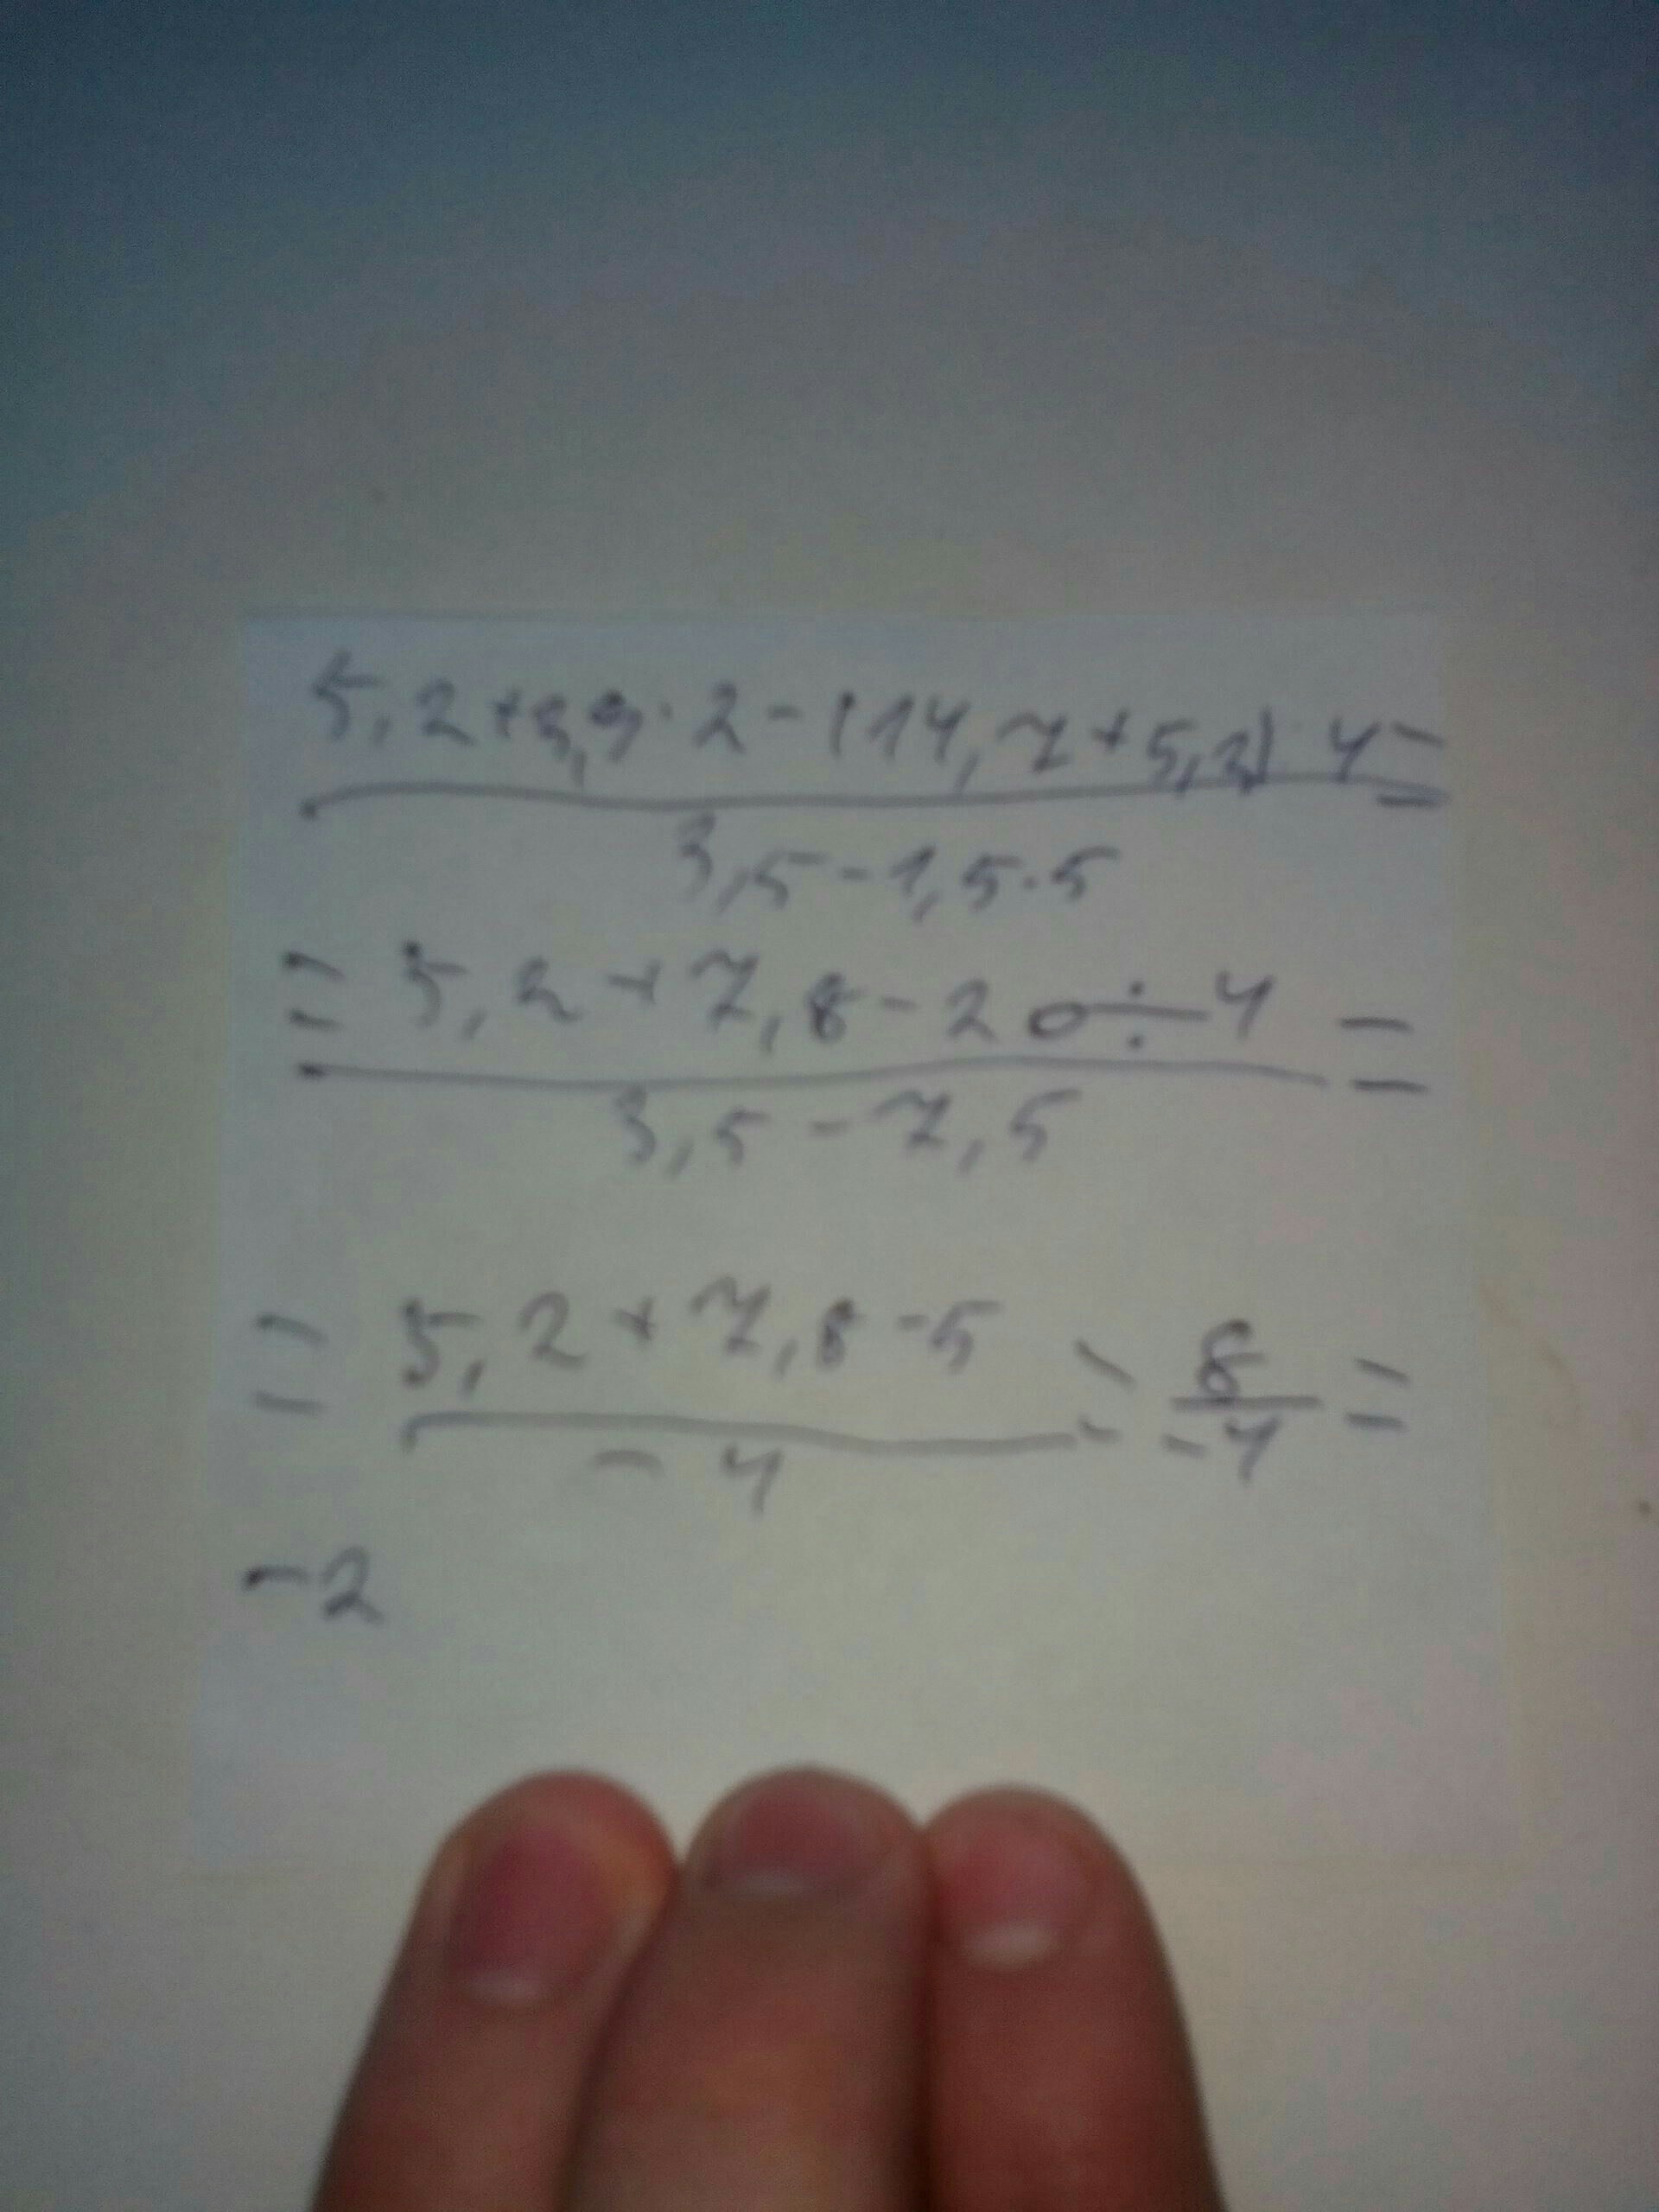 5,2+3,9·2-(14,7+5,2):4=
3,5-1,5·5
=5,2+7,8-20÷4=
3,5-7,5
=5,2+7,8-5=8=
-4 -4
-2